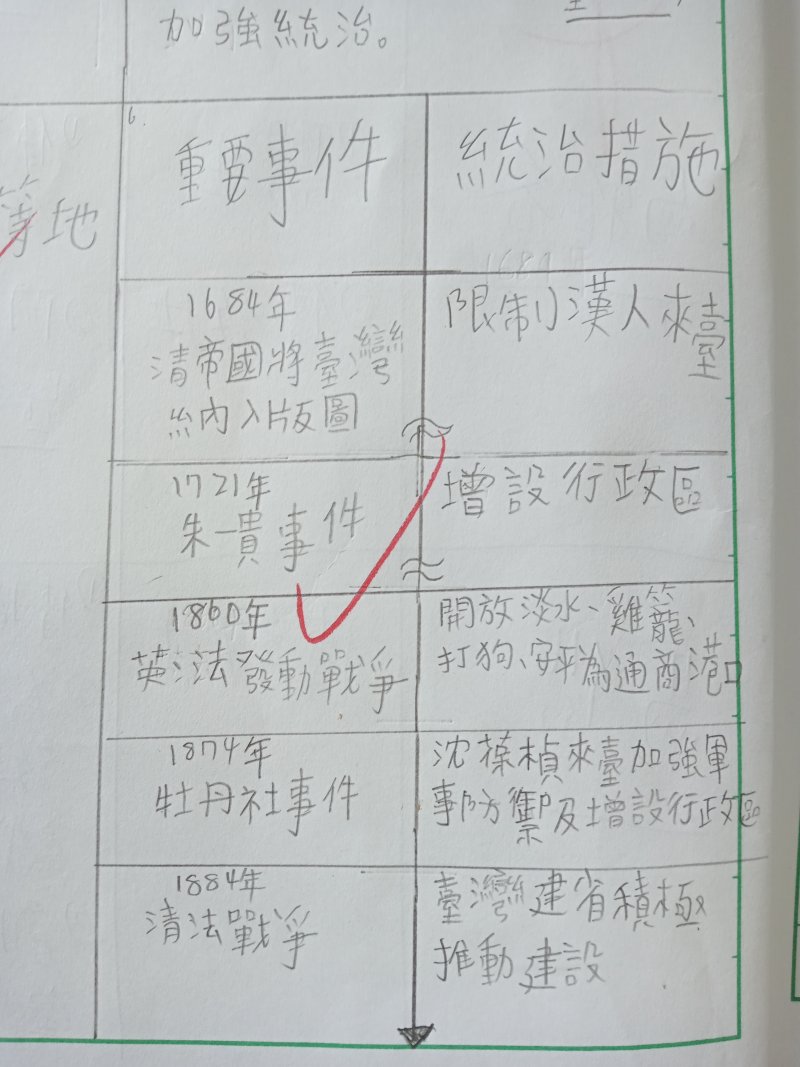 加強統治。
等地
6.
重要事件
統治措施
1684年
清帝國將臺灣
納入版圖
限制漢人來臺
1721年
朱一貴事件
增設行政區
1860年
英法發動戰爭
開放淡水、雞籠、
打狗、安平為通商港口
1874年
牡丹社事件
沈葆楨來臺加強軍
事防禦及增設行政區
1884年
清法戰爭
臺灣建省積極
推動建設